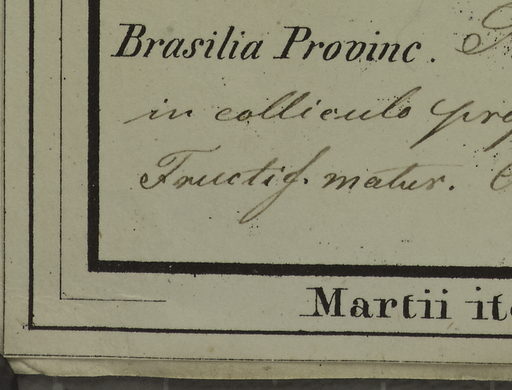 Brasilia Provinc.
in colliculo
Fructif. matur.
Martii